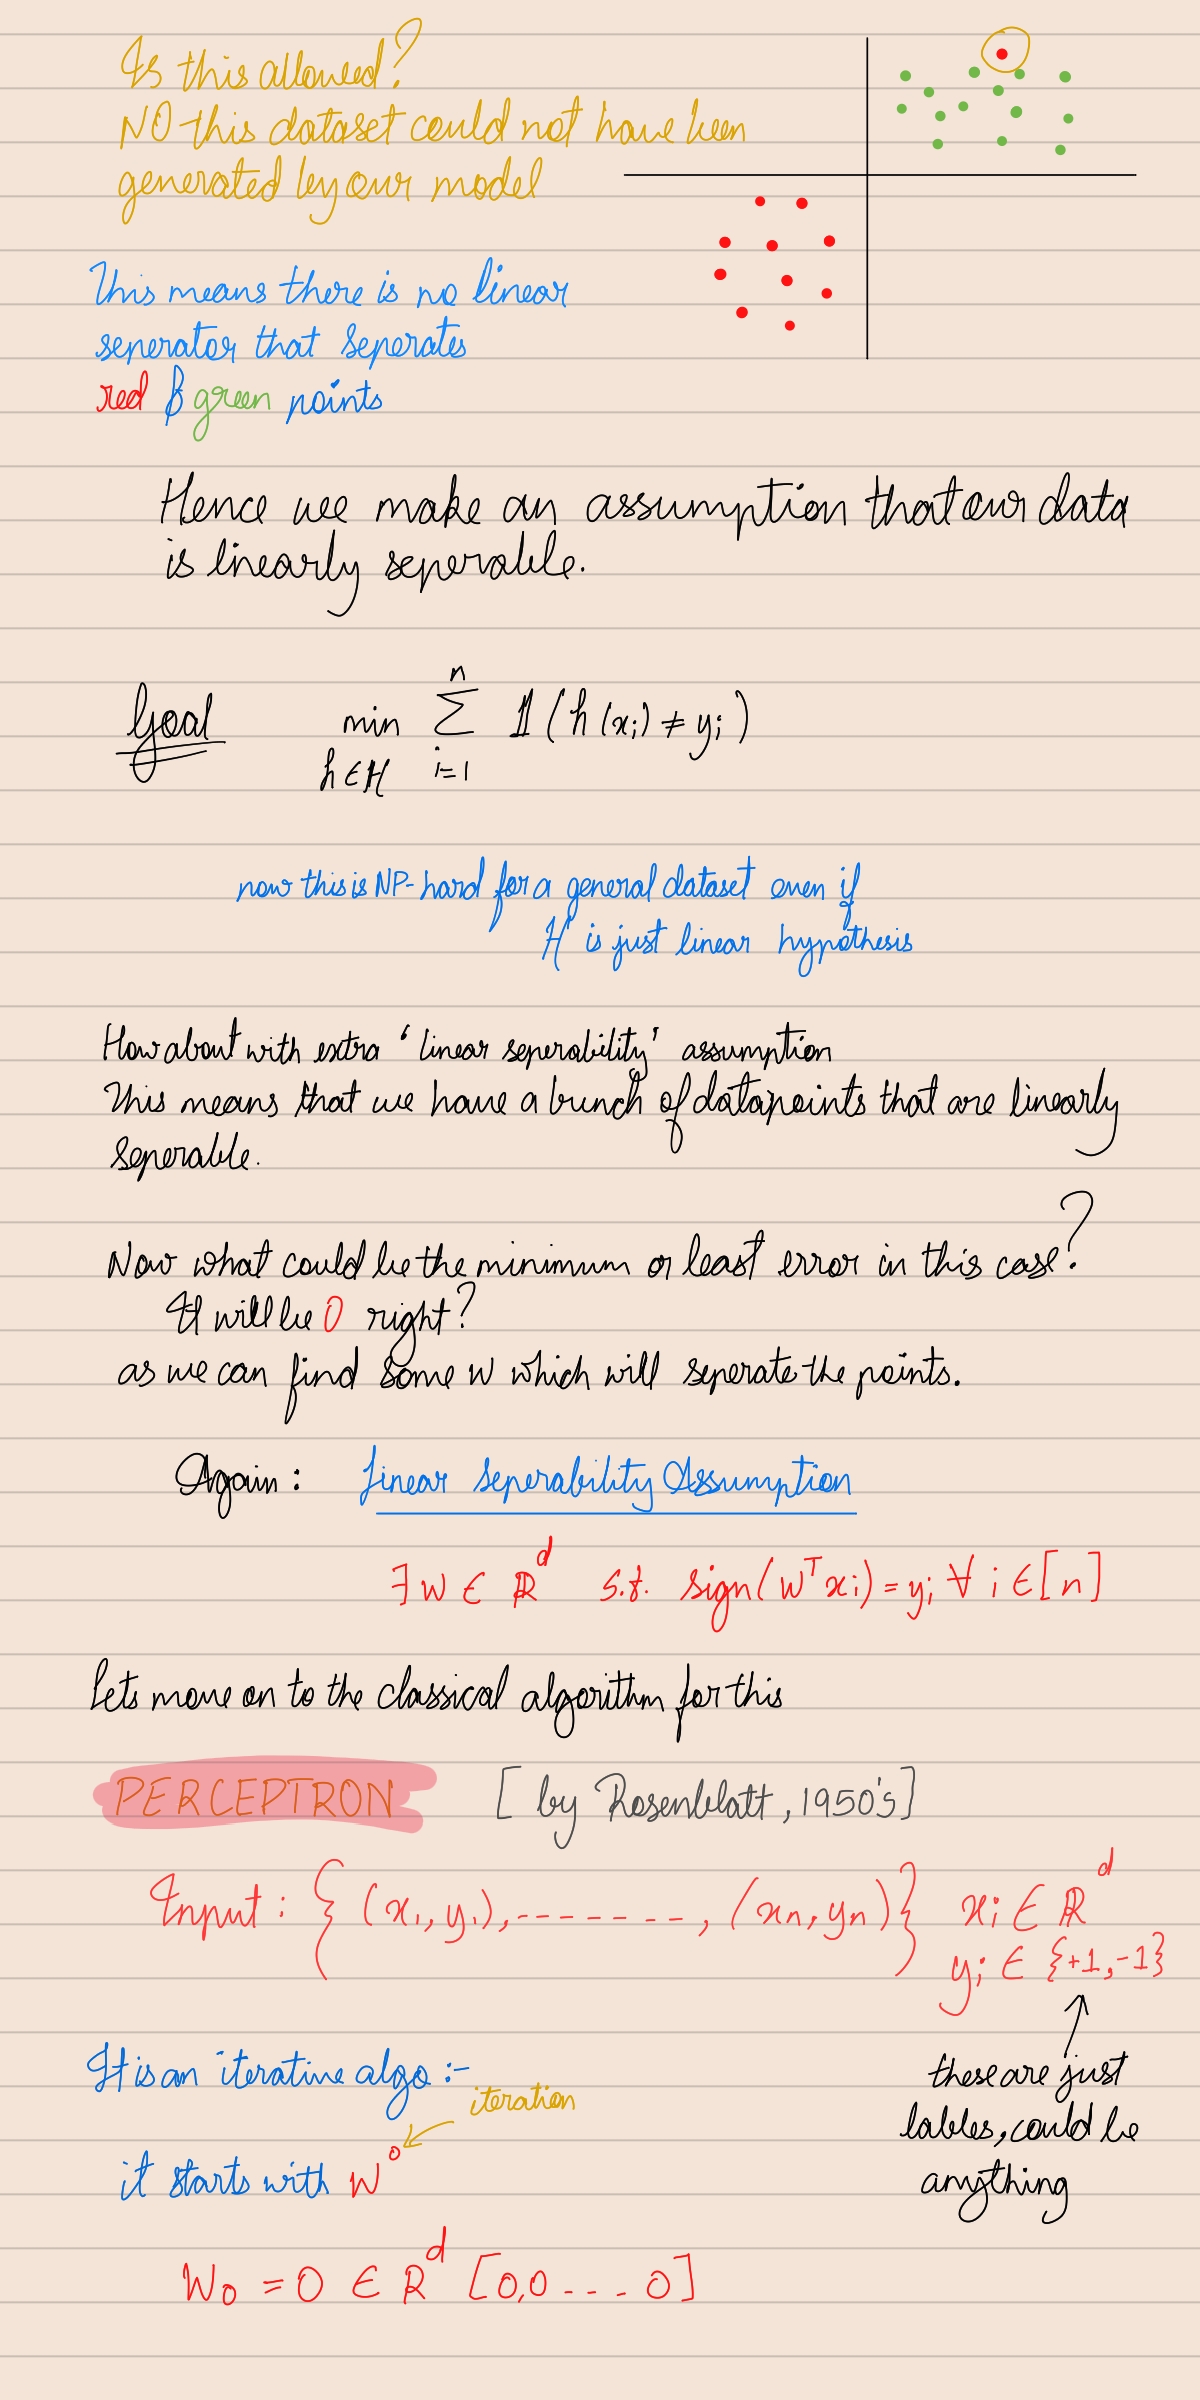 Is this allowed?
NO this dataset could not have been
generated by our model
This means there is no linear
seperator that seperates
red & green points
Hence we make an assumption that our data
is linearly seperable.
Goal min Σ 𝟙(h(xᵢ) ≠ yᵢ)
n
h∈H i=1
now this is NP-hard for a general dataset even if
H is just linear hypothesis
How about with extra ‘linear seperability’ assumption
This means that we have a bunch of datapoints that are linearly
seperable.
Now what could be the minimum or least error in this case?
It will be 0 right?
as we can find some w which will seperate the points.
Again: Linear Seperability Assumption
∃ w ∈ ℝᵈ s.t. sign(wᵀxᵢ) = yᵢ ∀ i ∈ [n]
Lets move on to the classical algorithm for this
PERCEPTRON [by Rosenblatt, 1950's]
Input: {(x₁, y₁), -------, (xₙ, yₙ)} xᵢ ∈ ℝᵈ
yᵢ ∈ {+1, -1}
these are just
lables, could be
anything
It is an iterative algo :-
iteration
it starts with W⁰
W₀ = 0 ∈ ℝᵈ [0,0 --- 0]